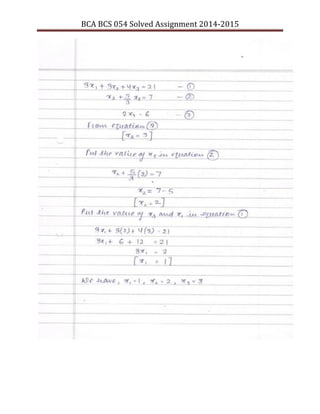 BCA BCS 054 Solved Assignment 2014-2015
3x₁ + 3x₂ + 4x₃ = 21 — ①
x₂ + 5/3 x₃ = 7 — ②
2x₃ = 6 — ③
From equation ③
[x₃ = 3]
Put the value of x₃ in equation ②
x₂ + 5/3 (3) = 7
x₂ = 7 - 5
[x₂ = 2]
Put the value of x₂ and x₃ in equation ①
3x₁ + 3(2) + 4(3) = 21
3x₁ + 6 + 12 = 21
3x₁ = 3
[x₁ = 1]
We have, x₁ = 1, x₂ = 2, x₃ = 3